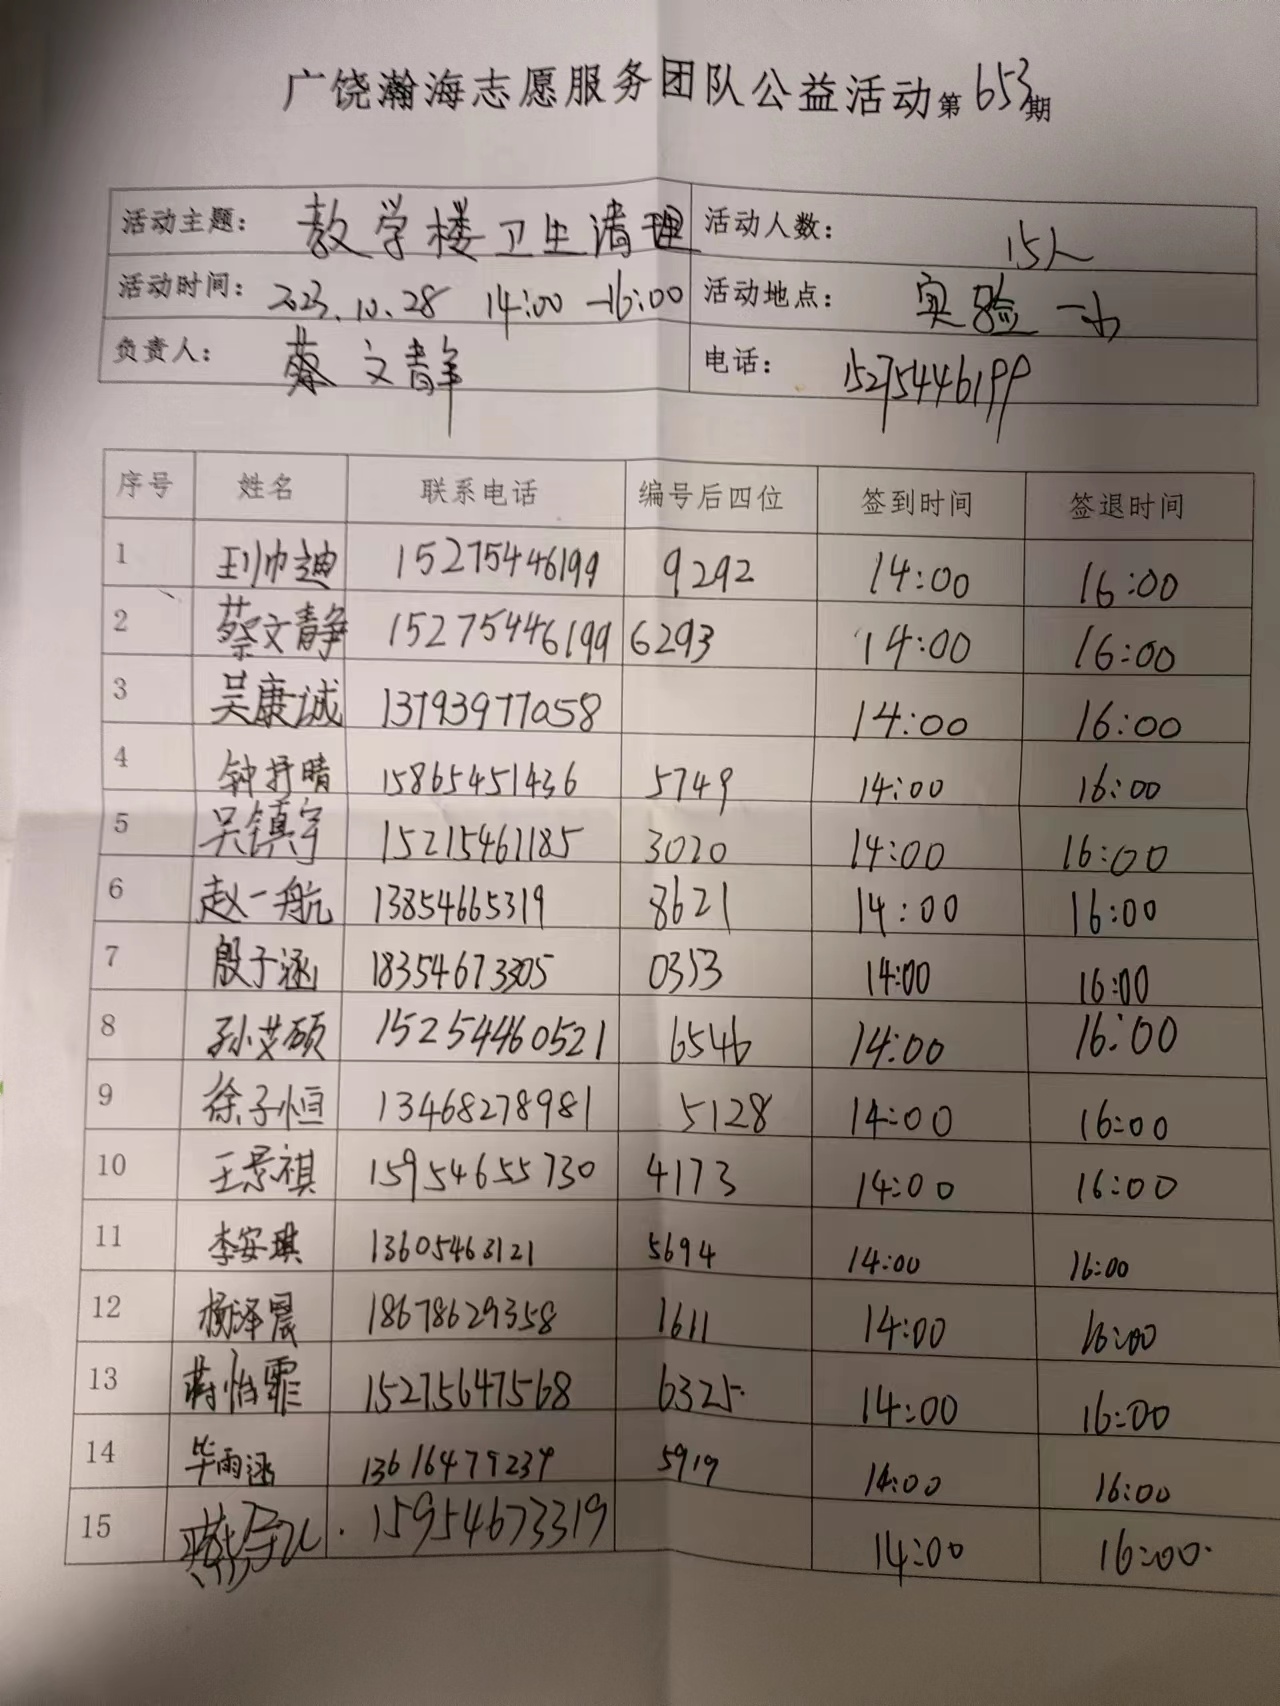 广饶瀚海志愿服务团队公益活动第653期
活动主题: 教学楼卫生清理 活动人数: 15人
活动时间: 2023.10.28 14:00-16:00 活动地点: 实验一小
负责人: 蔡文静 电话: 15275446199
序号 姓名 联系电话 编号后四位 签到时间 签退时间
1 15275446199 9292 14:00 16:00
2 蔡文静 15275446199 6293 14:00 16:00
3 吴康诚 13793977058 14:00 16:00
4 钟抒晴 15865451436 5749 14:00 16:00
5 吴镇宇 15215461185 3020 14:00 16:00
6 赵一航 13854665319 8621 14:00 16:00
7 殷子涵 18354673305 0353 14:00 16:00
8 孙艾硕 15254460521 6546 14:00 16:00
9 徐子恒 13468278981 5128 14:00 16:00
10 王景祺 15954655730 4173 14:00 16:00
11 李安琪 13605463121 5694 14:00 16:00
12 杨泽晨 18678629358 1611 14:00 16:00
13 蒋怡霏 15275647568 6325. 14:00 16:00
14 毕雨涵 13616479239 5919 14:00 16:00
15 15954673319 14:00 16:00.